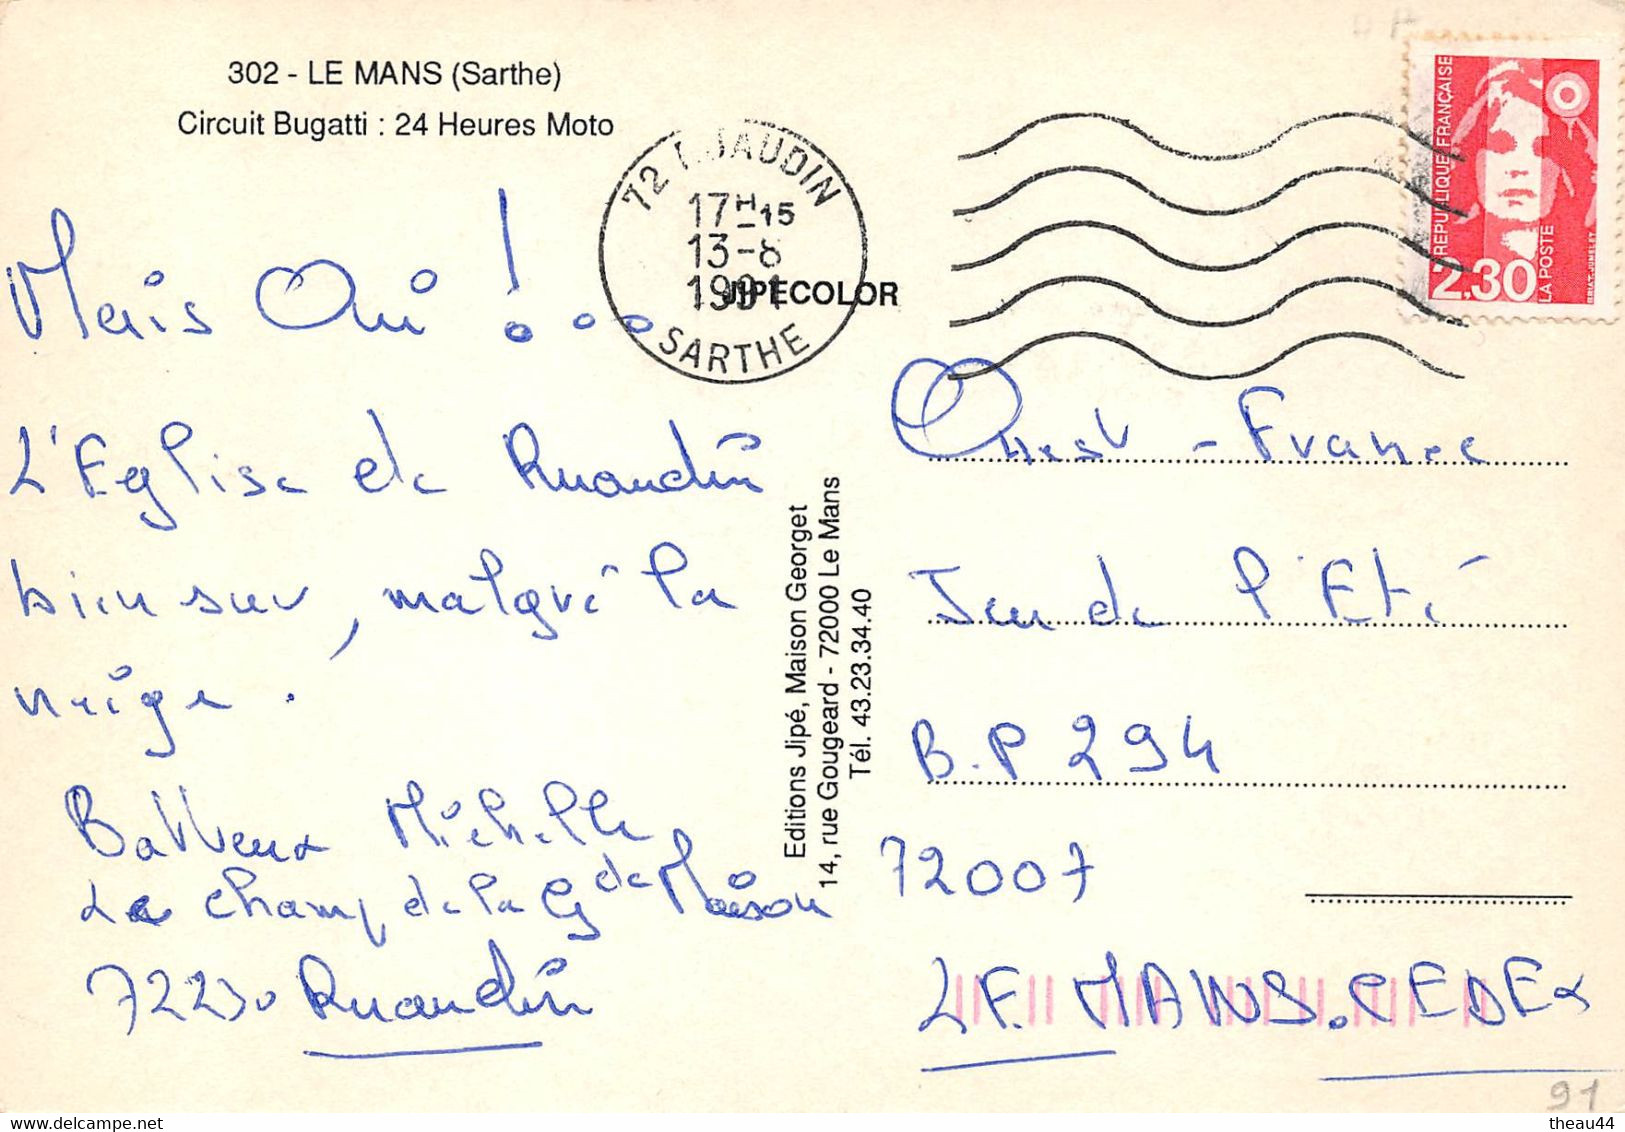 302 - LE MANS (Sarthe)
Circuit Bugatti : 24 Heures Moto
72 RUAUDIN
17H15
13-8
1991
SARTHE
JIPÉCOLOR
RÉPUBLIQUE FRANÇAISE
2,30
LA POSTE
Mais Oui !...
L'Eglise de Ruaudin
bien sur, malgré la
neige.
Batteux Michelle
Le champ de la Gde Maison
72230 Ruaudin
Editions Jipé, Maison Georget
14, rue Gougeard - 72000 Le Mans
Tél. 43.23.34.40
Ouest-France
Jeu de l'Eté
B.P 294
72007
LE MANS. CEDEX
91
theau44